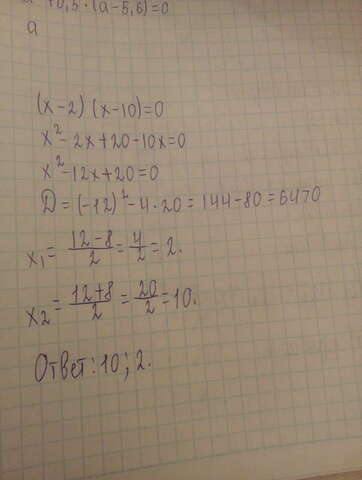 +0,5·(a-5,6)=0
a
(x-2)(x-10)=0
x²-2x+20-10x=0
x²-12x+20=0
D=(-12)²-4·20=144-80=64>0
x₁=\frac{12-8}{2}=\frac{4}{2}=2.
x₂=\frac{12+8}{2}=\frac{20}{2}=10.
Ответ: 10; 2.